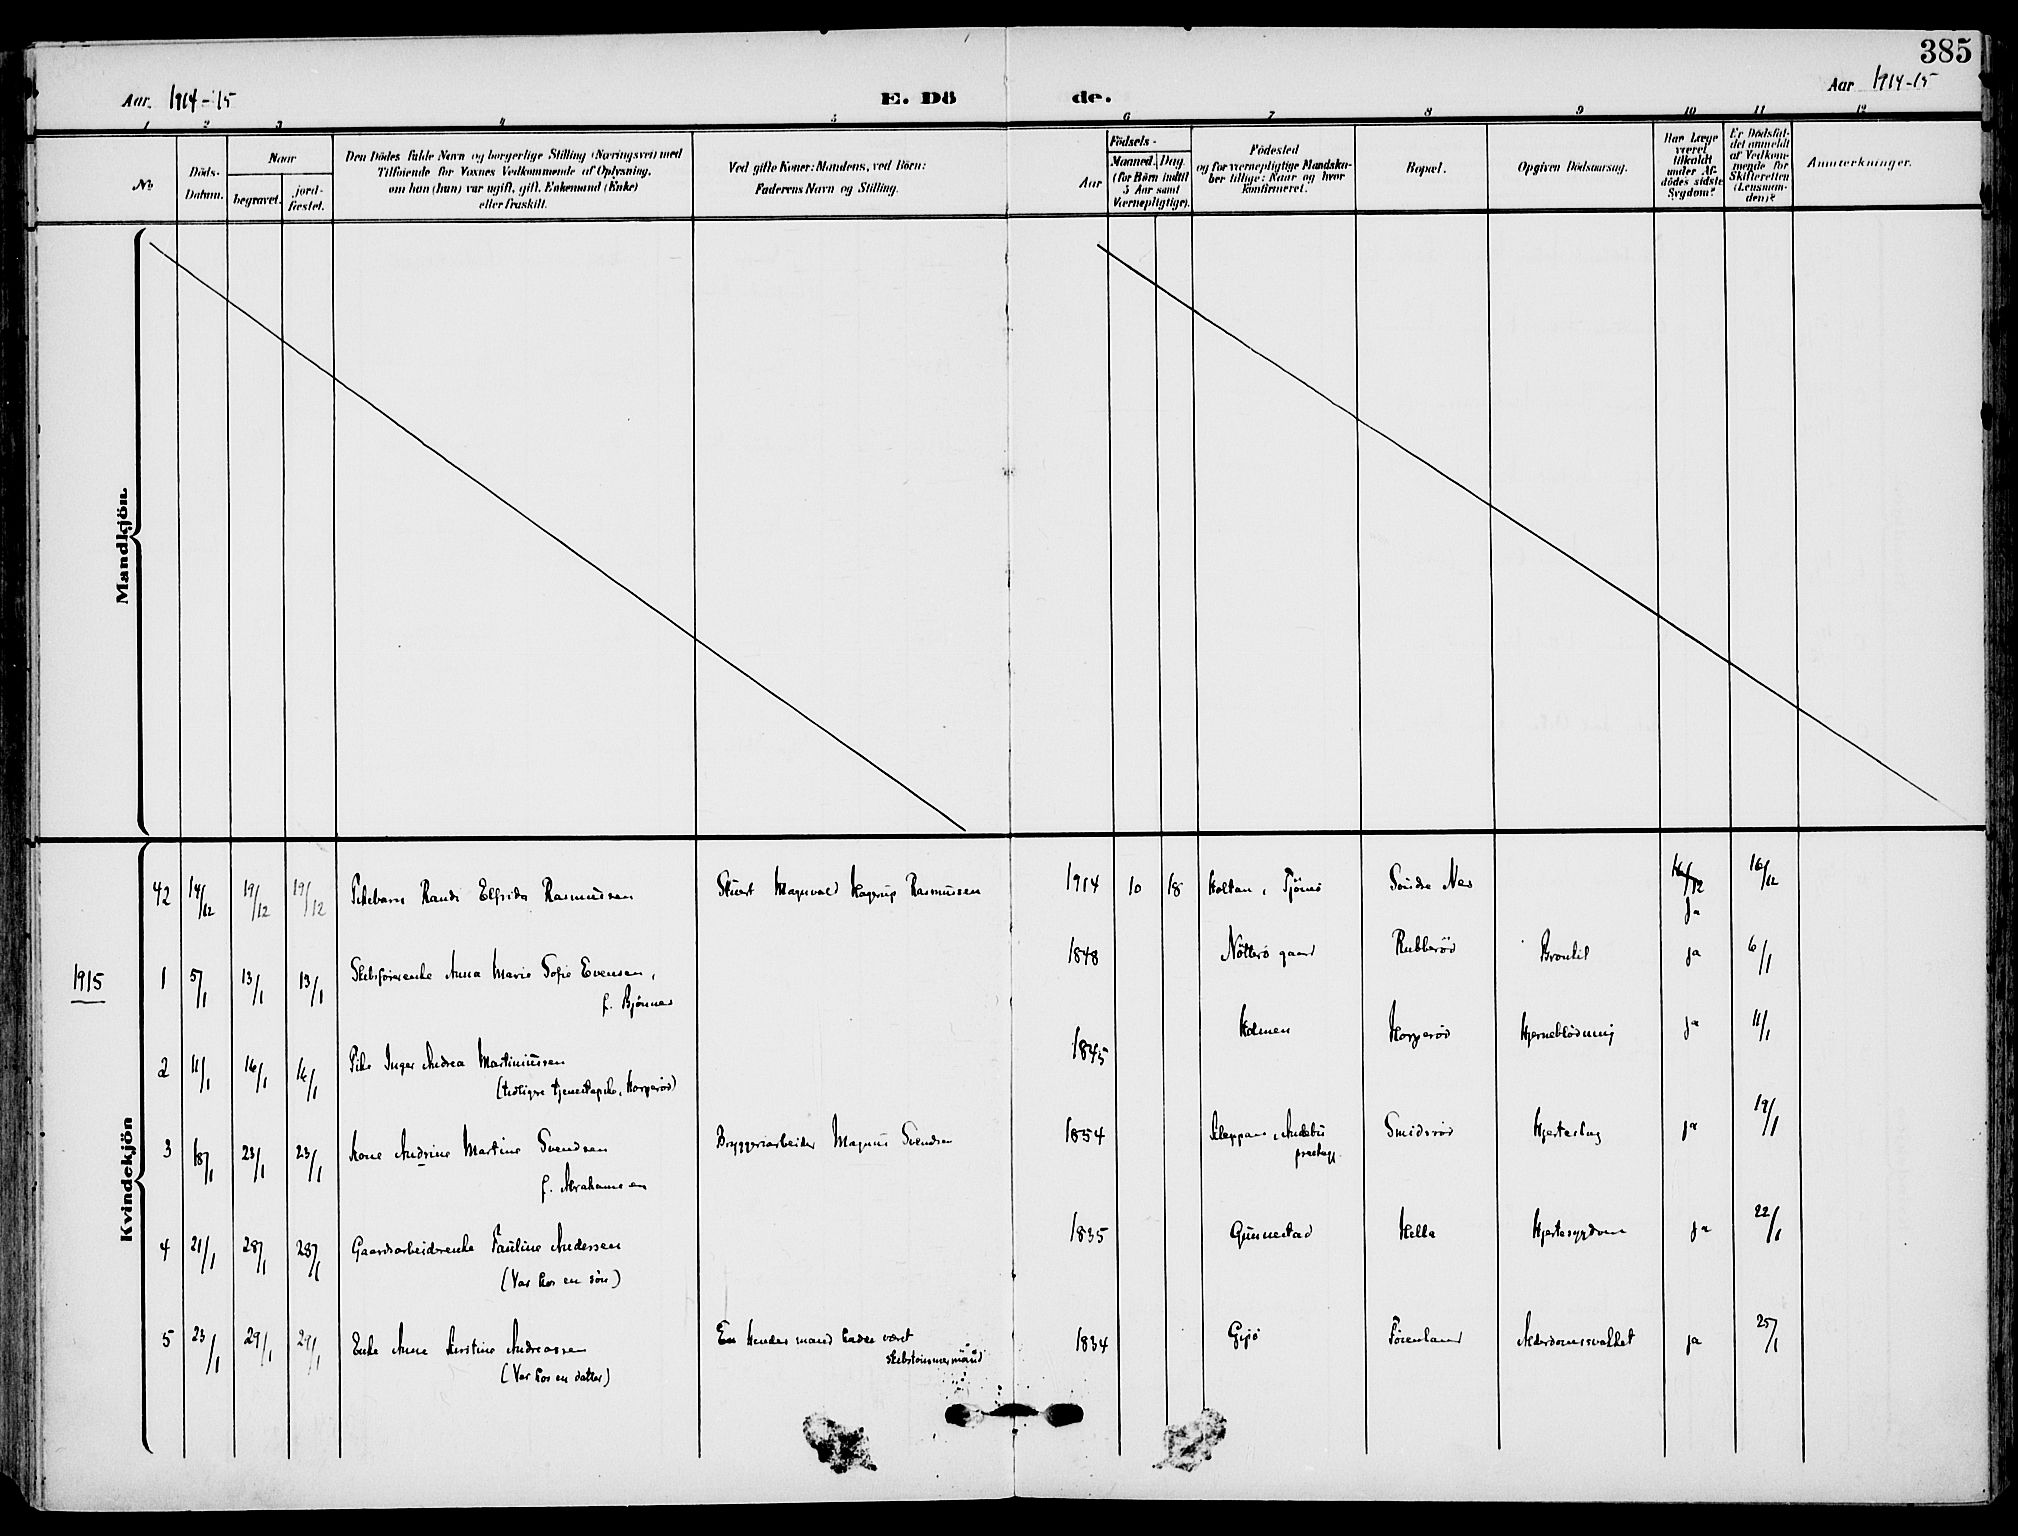 385
Aar 1914-15
E. Döde.
Aar 1914-15
1 2 3 4 5 6 7 8 9 10 11 12
No
Döds-Datum.
Naar
begravet.
jord-fæstet.
Den Dödes fulde Navn og borgerlige Stilling (Næringsvei) med
Tilföiende for Voxnes Vedkommende af Oplysning,
om han (hun) var ugift, gift, Enkemand (Enke)
eller fraskilt.
Ved gifte Koner: Mandens, ved Börn:
Faderens Navn og Stilling.
Aar
Födsels-
Maaned. Dag.
(for Börn indtil
5 Aar samt
Værnepligtige).
Födested
og for værnepligtige Mandska-
ber tillige: Naar og hvor
konfirmeret.
Bopæl.
Opgiven Dödsaarsag.
Har Læge
været
tilkaldt
under Af-
dödes sidste
Sygdom?
Er Dödsfal-
det anmeldt
af Vedkom-
mende for
Skifteretten
(Lensman-
den)?
Anmærkninger.
Mandkjön.
Kvindekjön
42 14/12 19/12 19/12 Pikebarn Randi Elfrida Rasmussen Stuert Magnvald Hagerup Rasmussen 1914 10 18 Holtan, Tjömö Söndre Nes 16/12 ja 16/12
1915
1 5/1 13/1 13/1 Skibsförerenke Anna Marie Sofie Evensen,
f. Bjönnes 1848 Nötterö gaard Rubberöd Bronkit ja 6/1
2 11/1 16/1 16/1 Pike Inger Andrea Martiniussen
(tidligere tjenestepike, Horperöd) 1845 Holmen Horperöd Hjerneblödning ja 11/1
3 18/1 23/1 23/1 Kone Andrine Martine Svendsen
f. Abrahamsen Bryggeriarbeider Magnus Svendsen 1854 Andebu
prestegj. Smidsröd Hjerteslag ja 19/1
4 21/1 28/1 28/1 Gaardsarbeiderenke Pauline Andersen
(Var hos en sön) 1835 Gunnestad Hella Hjertesygdom ja 22/1
5 23/1 29/1 29/1 Enke Anne Kirstine Andreassen
(Var hos en datter) En hendes mand hadde været
skibstömmermand 1834 Gipö Föienland Alderdomssvakhet ja 25/1